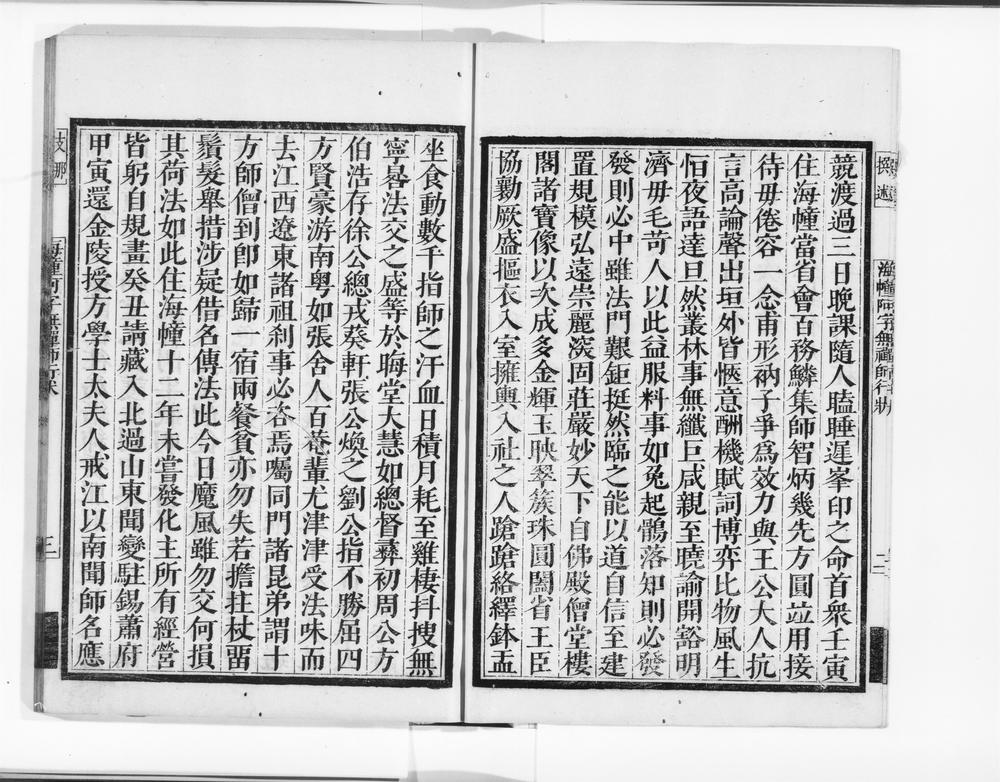 撰述
海幢阿字無禪師行狀
二
競渡過三日晚課隨人瞌睡遲峯印之命首衆壬寅
住海幢當省會百務鱗集師智炳幾先方圓竝用接
待毋倦容一念甫形衲子爭爲效力與王公大人抗
言高論聲出垣外皆愜意酬機賦詞博弈比物風生
恒夜語達旦然叢林事無纖巨咸親至曉諭開豁明
濟毋毛苛人以此益服料事如兔起鶻落知則必發
發則必中雖法門艱鉅挺然臨之能以道自信至建
置規模弘遠崇麗深固莊嚴妙天下自佛殿僧堂樓
閣諸寶像以次成多金輝玉映翠簇珠圓闔省王臣
協勷厥盛摳衣入室擁輿入社之人蹌蹌絡繹鉢盂
坐食動數千指師之汗血日積月耗至雞棲抖搜無
寧晷法交之盛等於晦堂大慧如總督彝初周公方
伯浩仔徐公總戎葵軒張公煥之劉公指不勝屈四
方賢豪游南粤如張舍人百菴輩尤津津受法味而
去江西遼東諸祖刹事必咨焉囑同門諸昆弟謂十
方師僧到卽如歸一宿兩餐貧亦勿失若擔拄杖畱
鬚髮舉措涉疑借名傳法此今日魔風雖勿交何損
其荷法如此住海幢十二年未嘗發化主所有經營
皆躬自規畫癸丑請藏入北過山東聞變駐錫蕭府
甲寅還金陵授方學士太夫人戒江以南聞師名應
支那
海幢阿字無禪師行狀
三